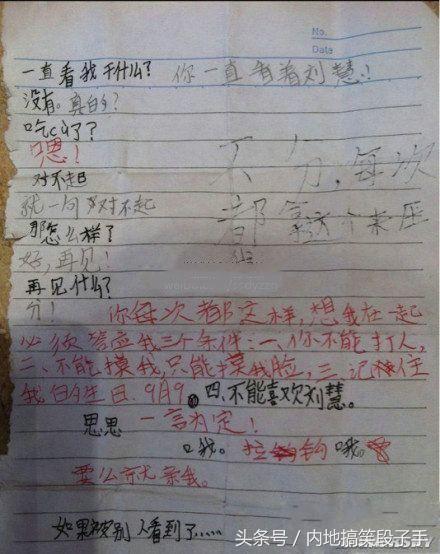 No.
Date
一直看我干什么? 你一直看着刘慧!
没有。真的?
吃醋了?
嗯!
对不起
就一句对不起
不分,每次
那怎么样了?
都拿这个来压
好,再见!
再见什么?
分! 你每次都这样,想我在一起
必须答应我三个条件:一、你不能打人,
二、不能摸我,只能摸我脸,三、记住
我的生日.9月9。四、不能喜欢刘慧。
思思 一言为定!
口我。拉钩 哦。
要么就亲我。
如果被别人看到了......
头条号 / 内地搞笑段子手